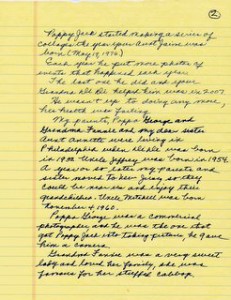 2
Poppy Jack started making a series of
collages the year your Aunt Jaime was
born (May 19, 1976)
Each year he put more photos of
events that happened each year
The last one he did and your
Grandma Del helped him was in 2007
He wasn't up to doing any more,
his health was failing
My parents, Poppa George and
Grandma Fannie and my dear sister
Aunt Annette were living in
Philadelphia when was born
in 19 Uncle Jeffrey was born in 1959.
A year or so later my parents and
sister moved to New Jersey so they
could be near us and enjoy their
grandchildren. Uncle Mitchell was born
November 4, 1962.
Poppa George was a commercial
photographer and he was the one that
got Poppy Jack into taking pictures, he gave
him a camera
Grandma Fannie was a very sweet
lady and loved her family, she was
famous for her stuffed cabbage